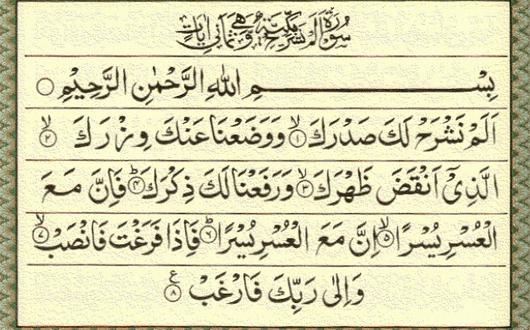 سورة الم نشرح مكية وهي ثماني ايات
بِسْمِ اللهِ الرَّحْمٰنِ الرَّحِيْمِ
اَلَمْ نَشْرَحْ لَكَ صَدْرَكَ ۙ﴿۱﴾ وَوَضَعْنَا عَنْكَ وِزْرَكَ ۙ﴿۲﴾
الَّذِيْۤ اَنْقَضَ ظَهْرَكَ ۙ﴿۳﴾ وَرَفَعْنَا لَكَ ذِكْرَكَ ؕ﴿۴﴾ فَاِنَّ مَعَ
الْعُسْرِ يُسْرًا ۙ﴿۵﴾ اِنَّ مَعَ الْعُسْرِ يُسْرًا ؕ﴿۶﴾ فَاِذَا فَرَغْتَ فَانْصَبْ ۙ﴿۷﴾
وَاِلٰى رَبِّكَ فَارْغَبْ ﴿۸﴾ ع